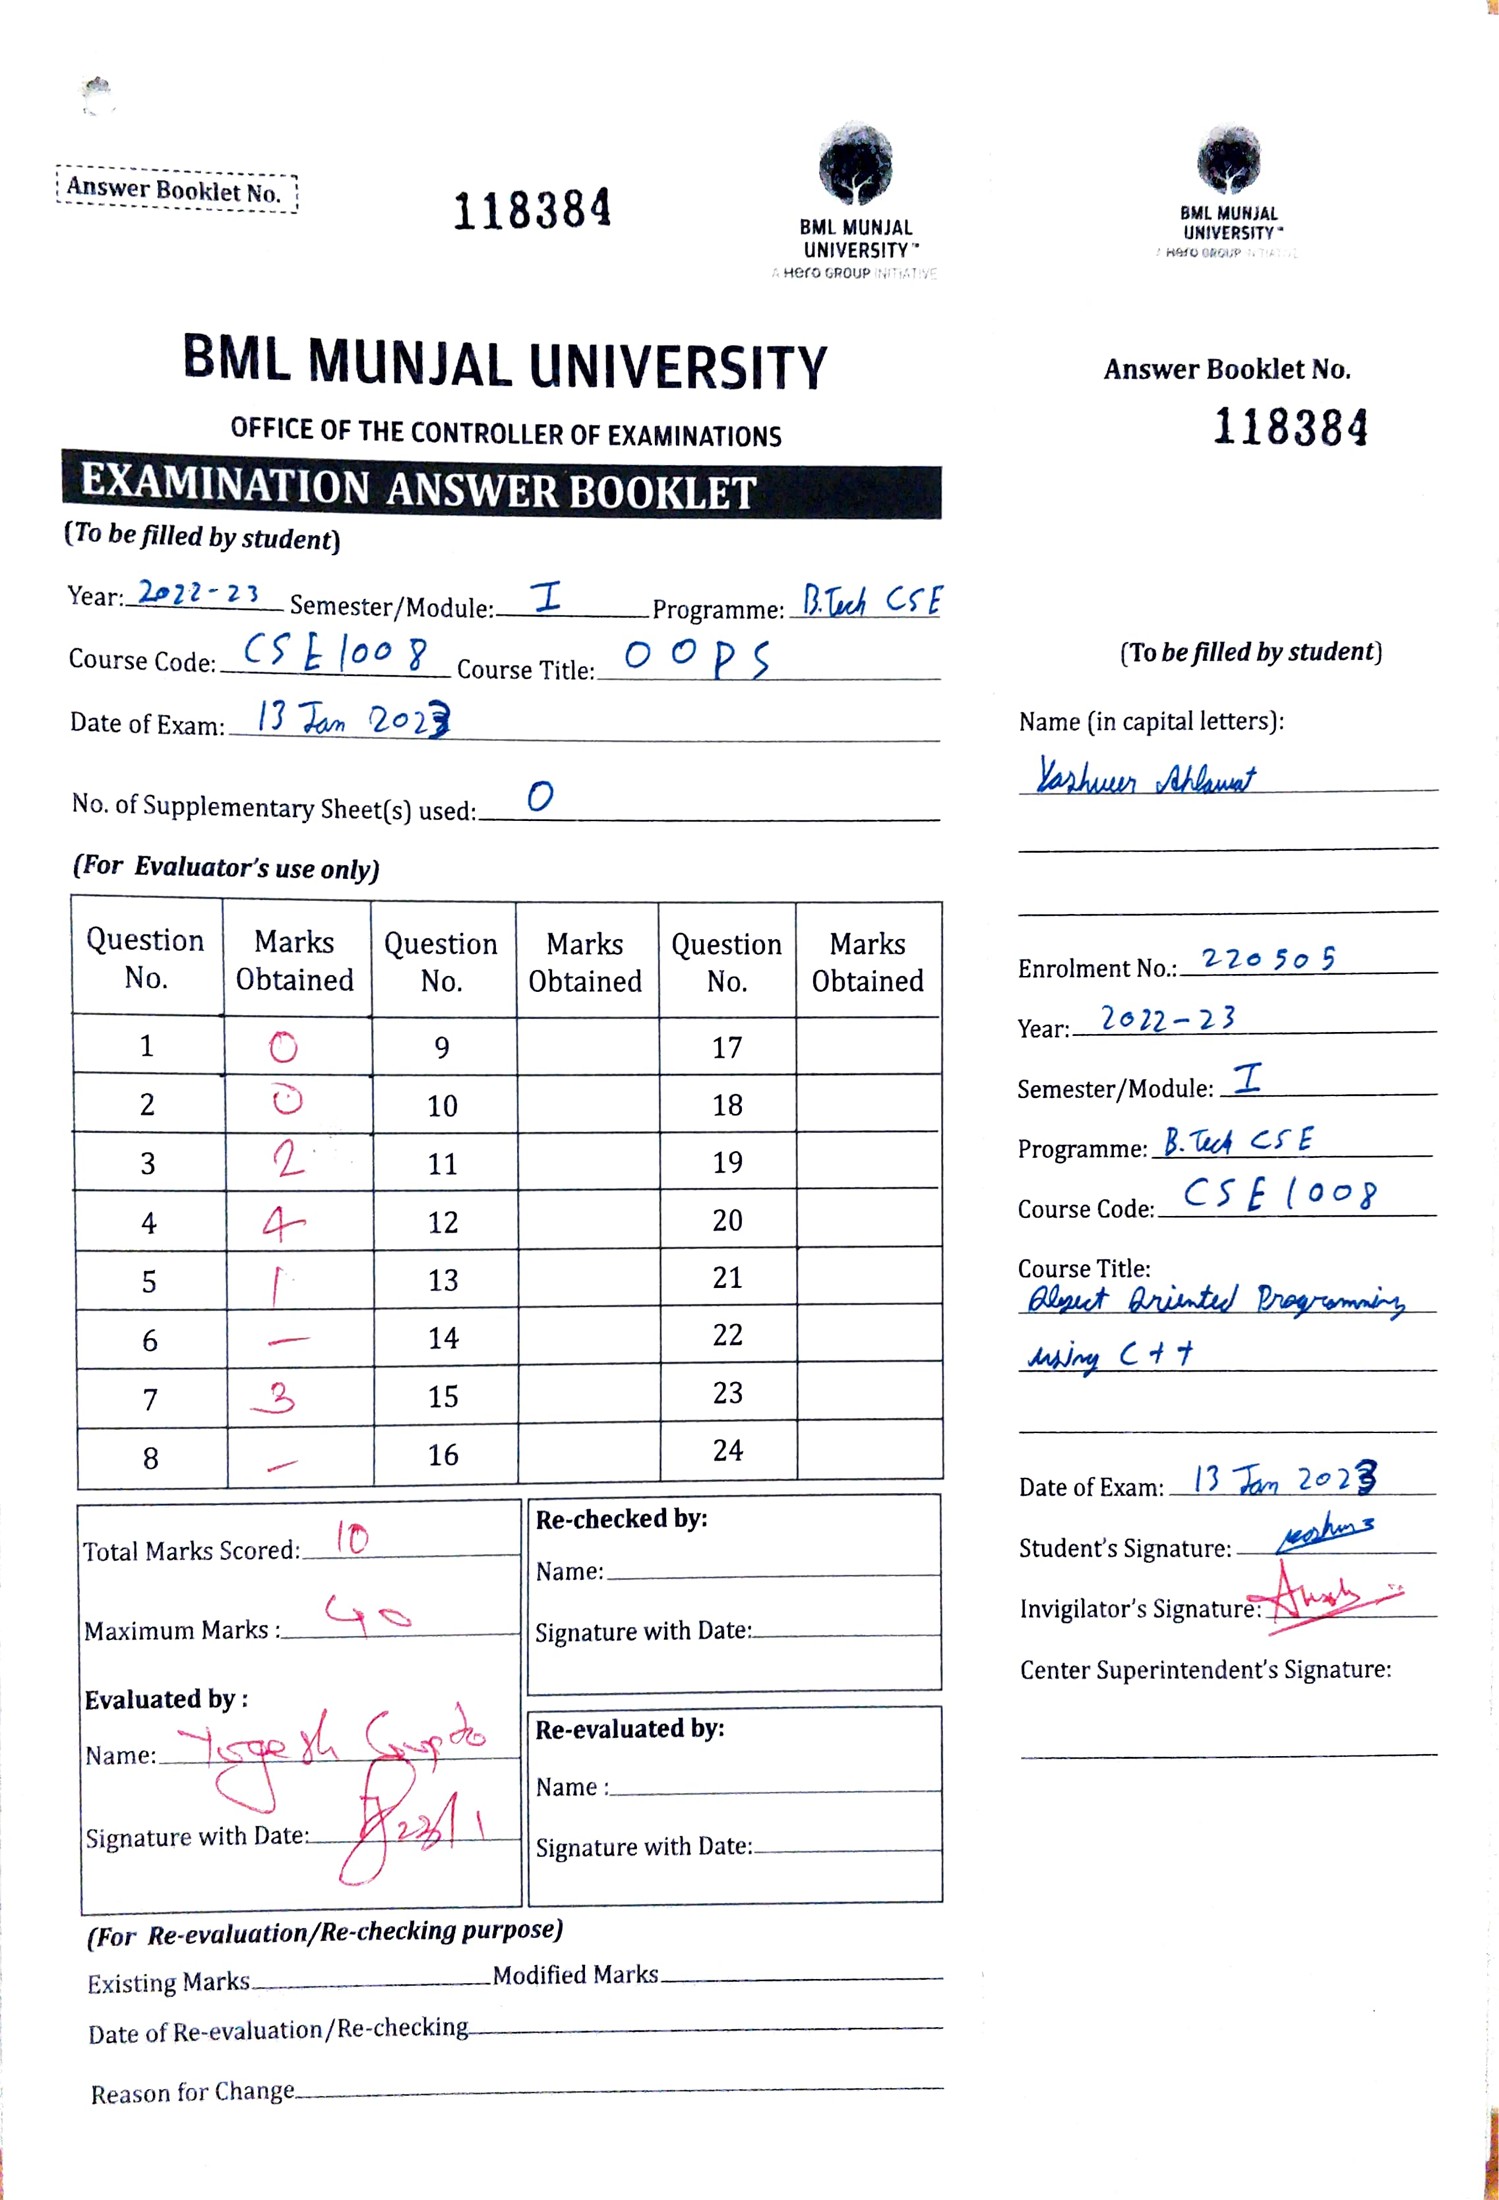 Answer Booklet No.
118384
BML MUNJAL
UNIVERSITY™
A Hero GROUP INITIATIVE
BML MUNJAL UNIVERSITY
OFFICE OF THE CONTROLLER OF EXAMINATIONS
EXAMINATION ANSWER BOOKLET
(To be filled by student)
Year: 2022-23 Semester/Module: I Programme: B.Tech CSE
Course Code: CSE1008 Course Title: OOPS
Date of Exam: 13 Jan 2023
No. of Supplementary Sheet(s) used: 0
(For Evaluator's use only)
Question No. Marks Obtained Question No. Marks Obtained Question No. Marks Obtained
1 0 9 17
2 0 10 18
3 2 11 19
4 4 12 20
5 1 13 21
6 – 14 22
7 3 15 23
8 – 16 24
Total Marks Scored: 10
Maximum Marks : 40
Evaluated by :
Name: Yogesh Gupta
Signature with Date: 23/1
Re-checked by:
Name:
Signature with Date:
Re-evaluated by:
Name :
Signature with Date:
(For Re-evaluation/Re-checking purpose)
Existing Marks Modified Marks
Date of Re-evaluation/Re-checking
Reason for Change
BML MUNJAL
UNIVERSITY™
A Hero GROUP INITIATIVE
Answer Booklet No.
118384
(To be filled by student)
Name (in capital letters):
Yashveer Ahlawat
Enrolment No.: 220505
Year: 2022-23
Semester/Module: I
Programme: B.Tech CSE
Course Code: CSE1008
Course Title:
Object Oriented Programming
using C++
Date of Exam: 13 Jan 2023
Student's Signature:
Invigilator's Signature:
Center Superintendent's Signature: